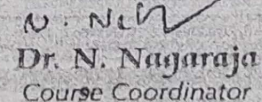 Dr. N. Nagaraja
Course Coordinator